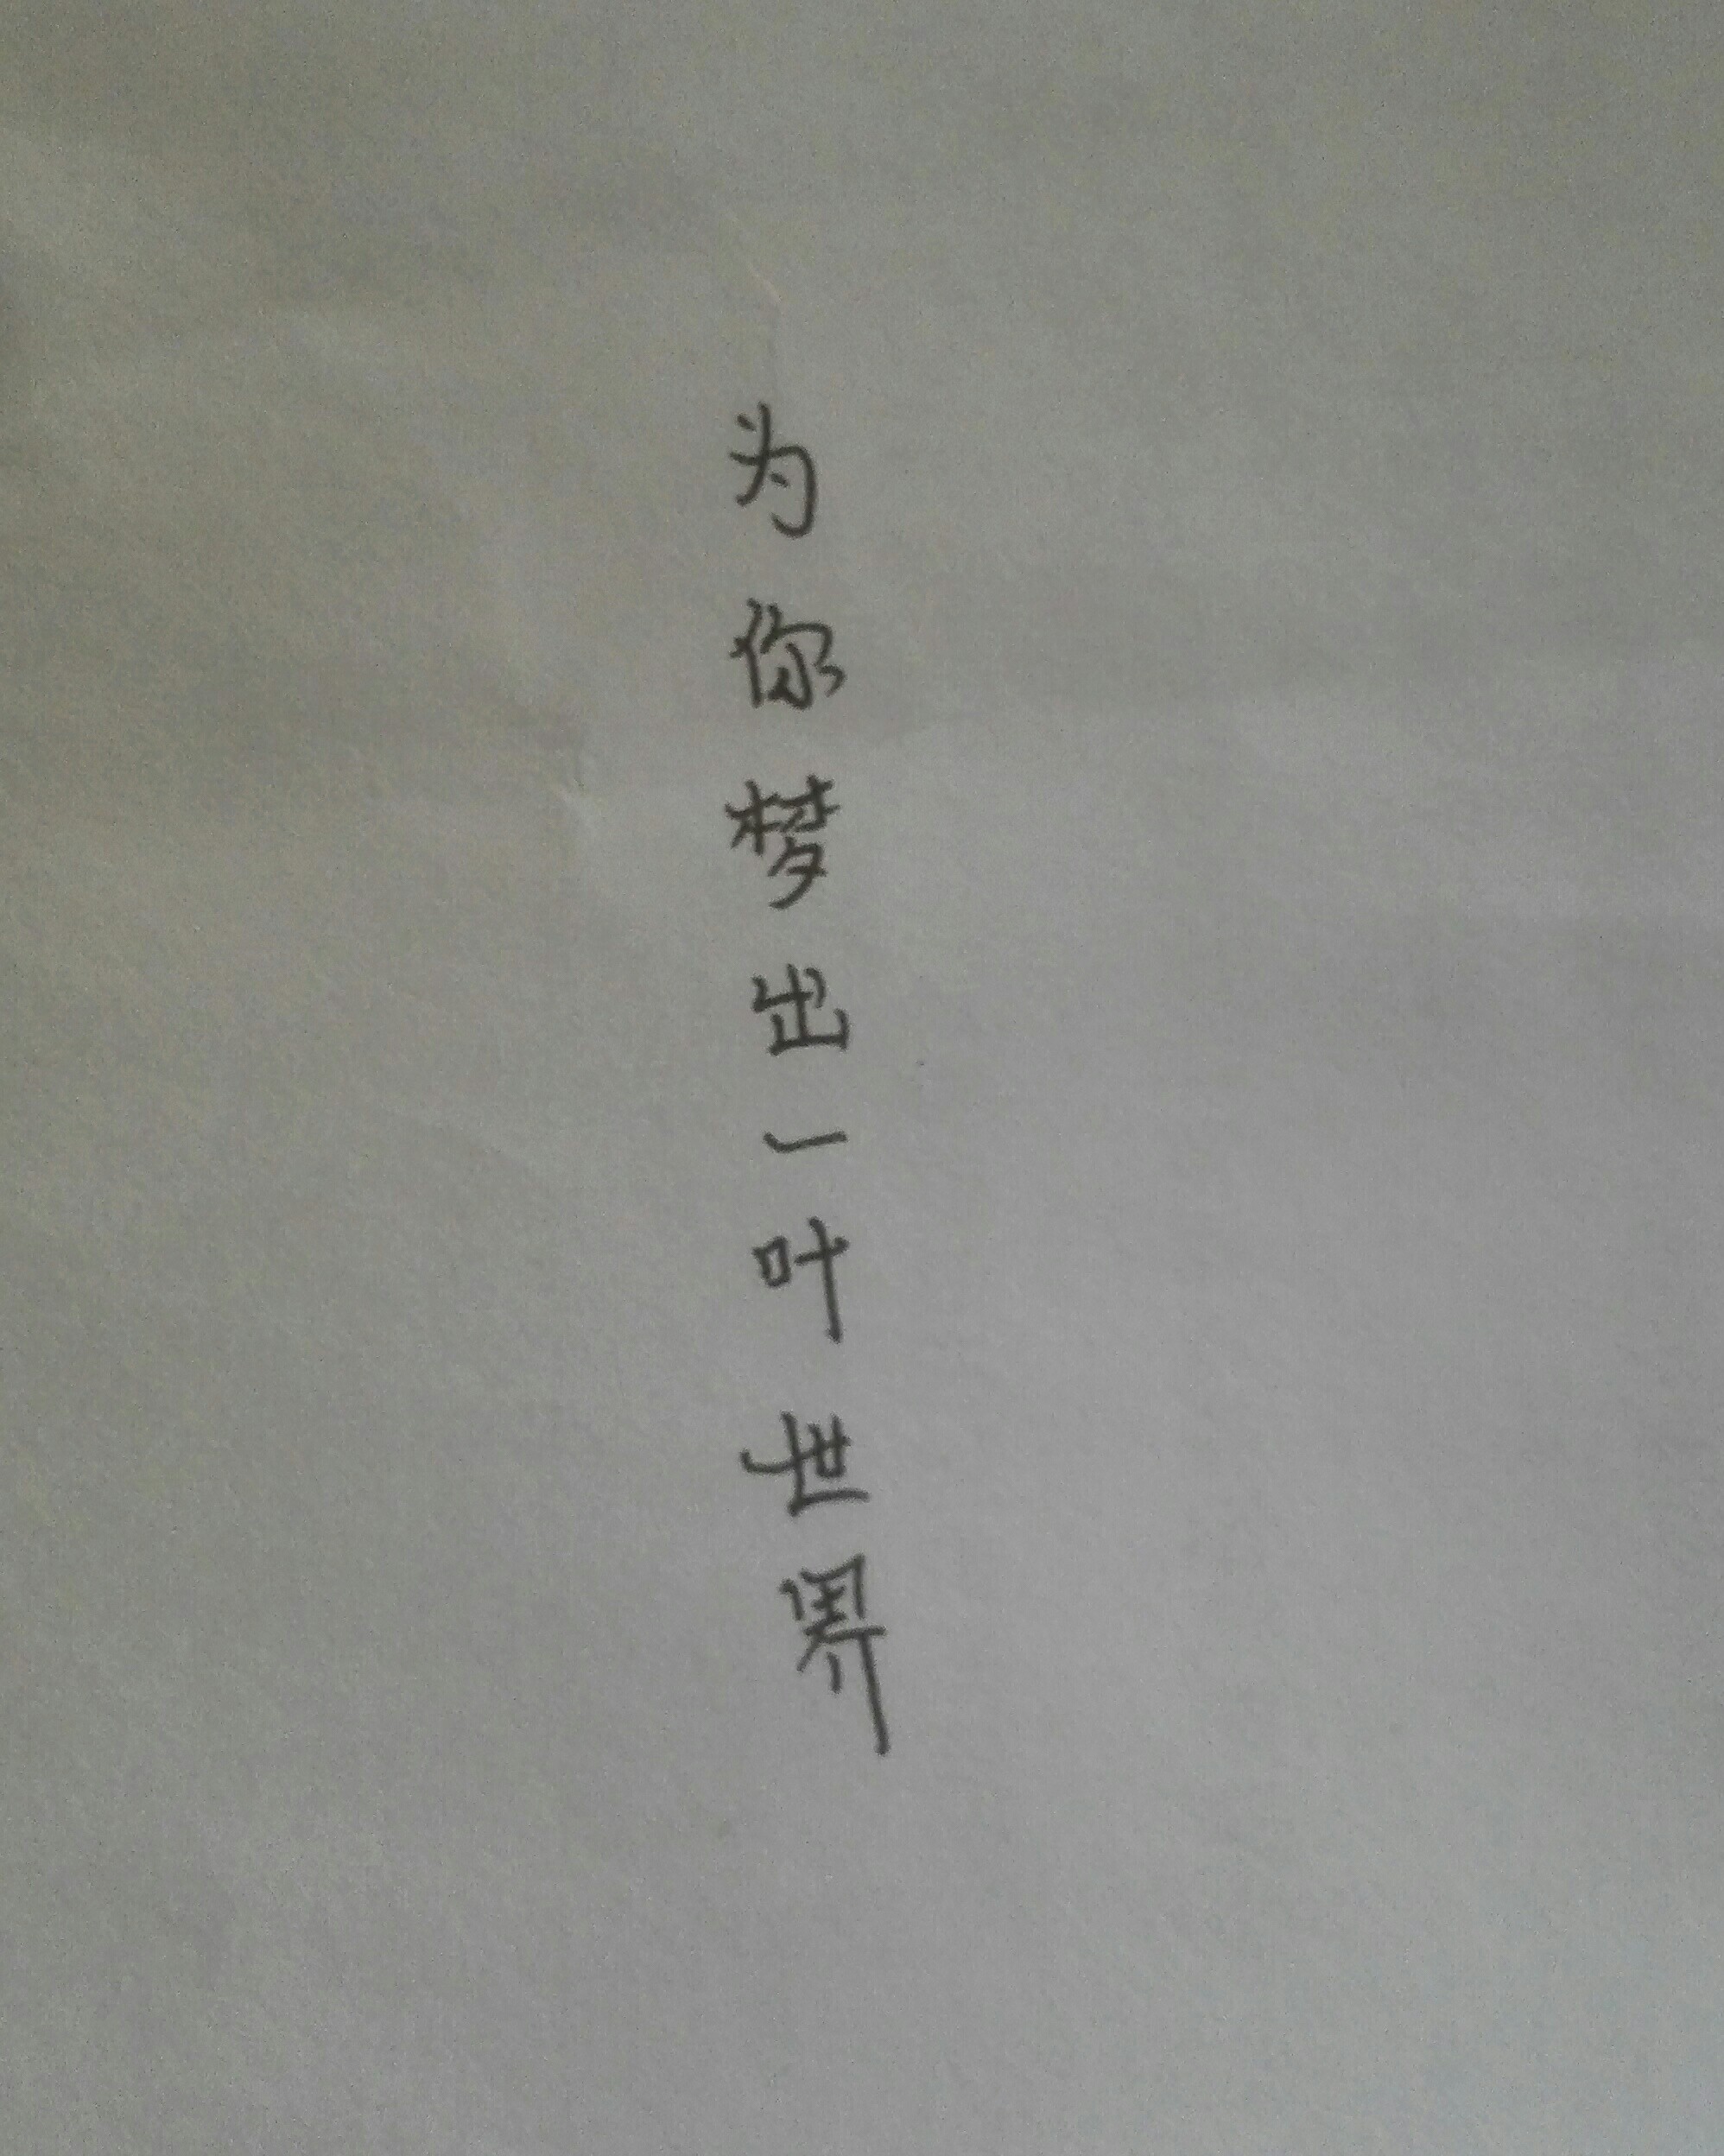 为你梦出一叶世界